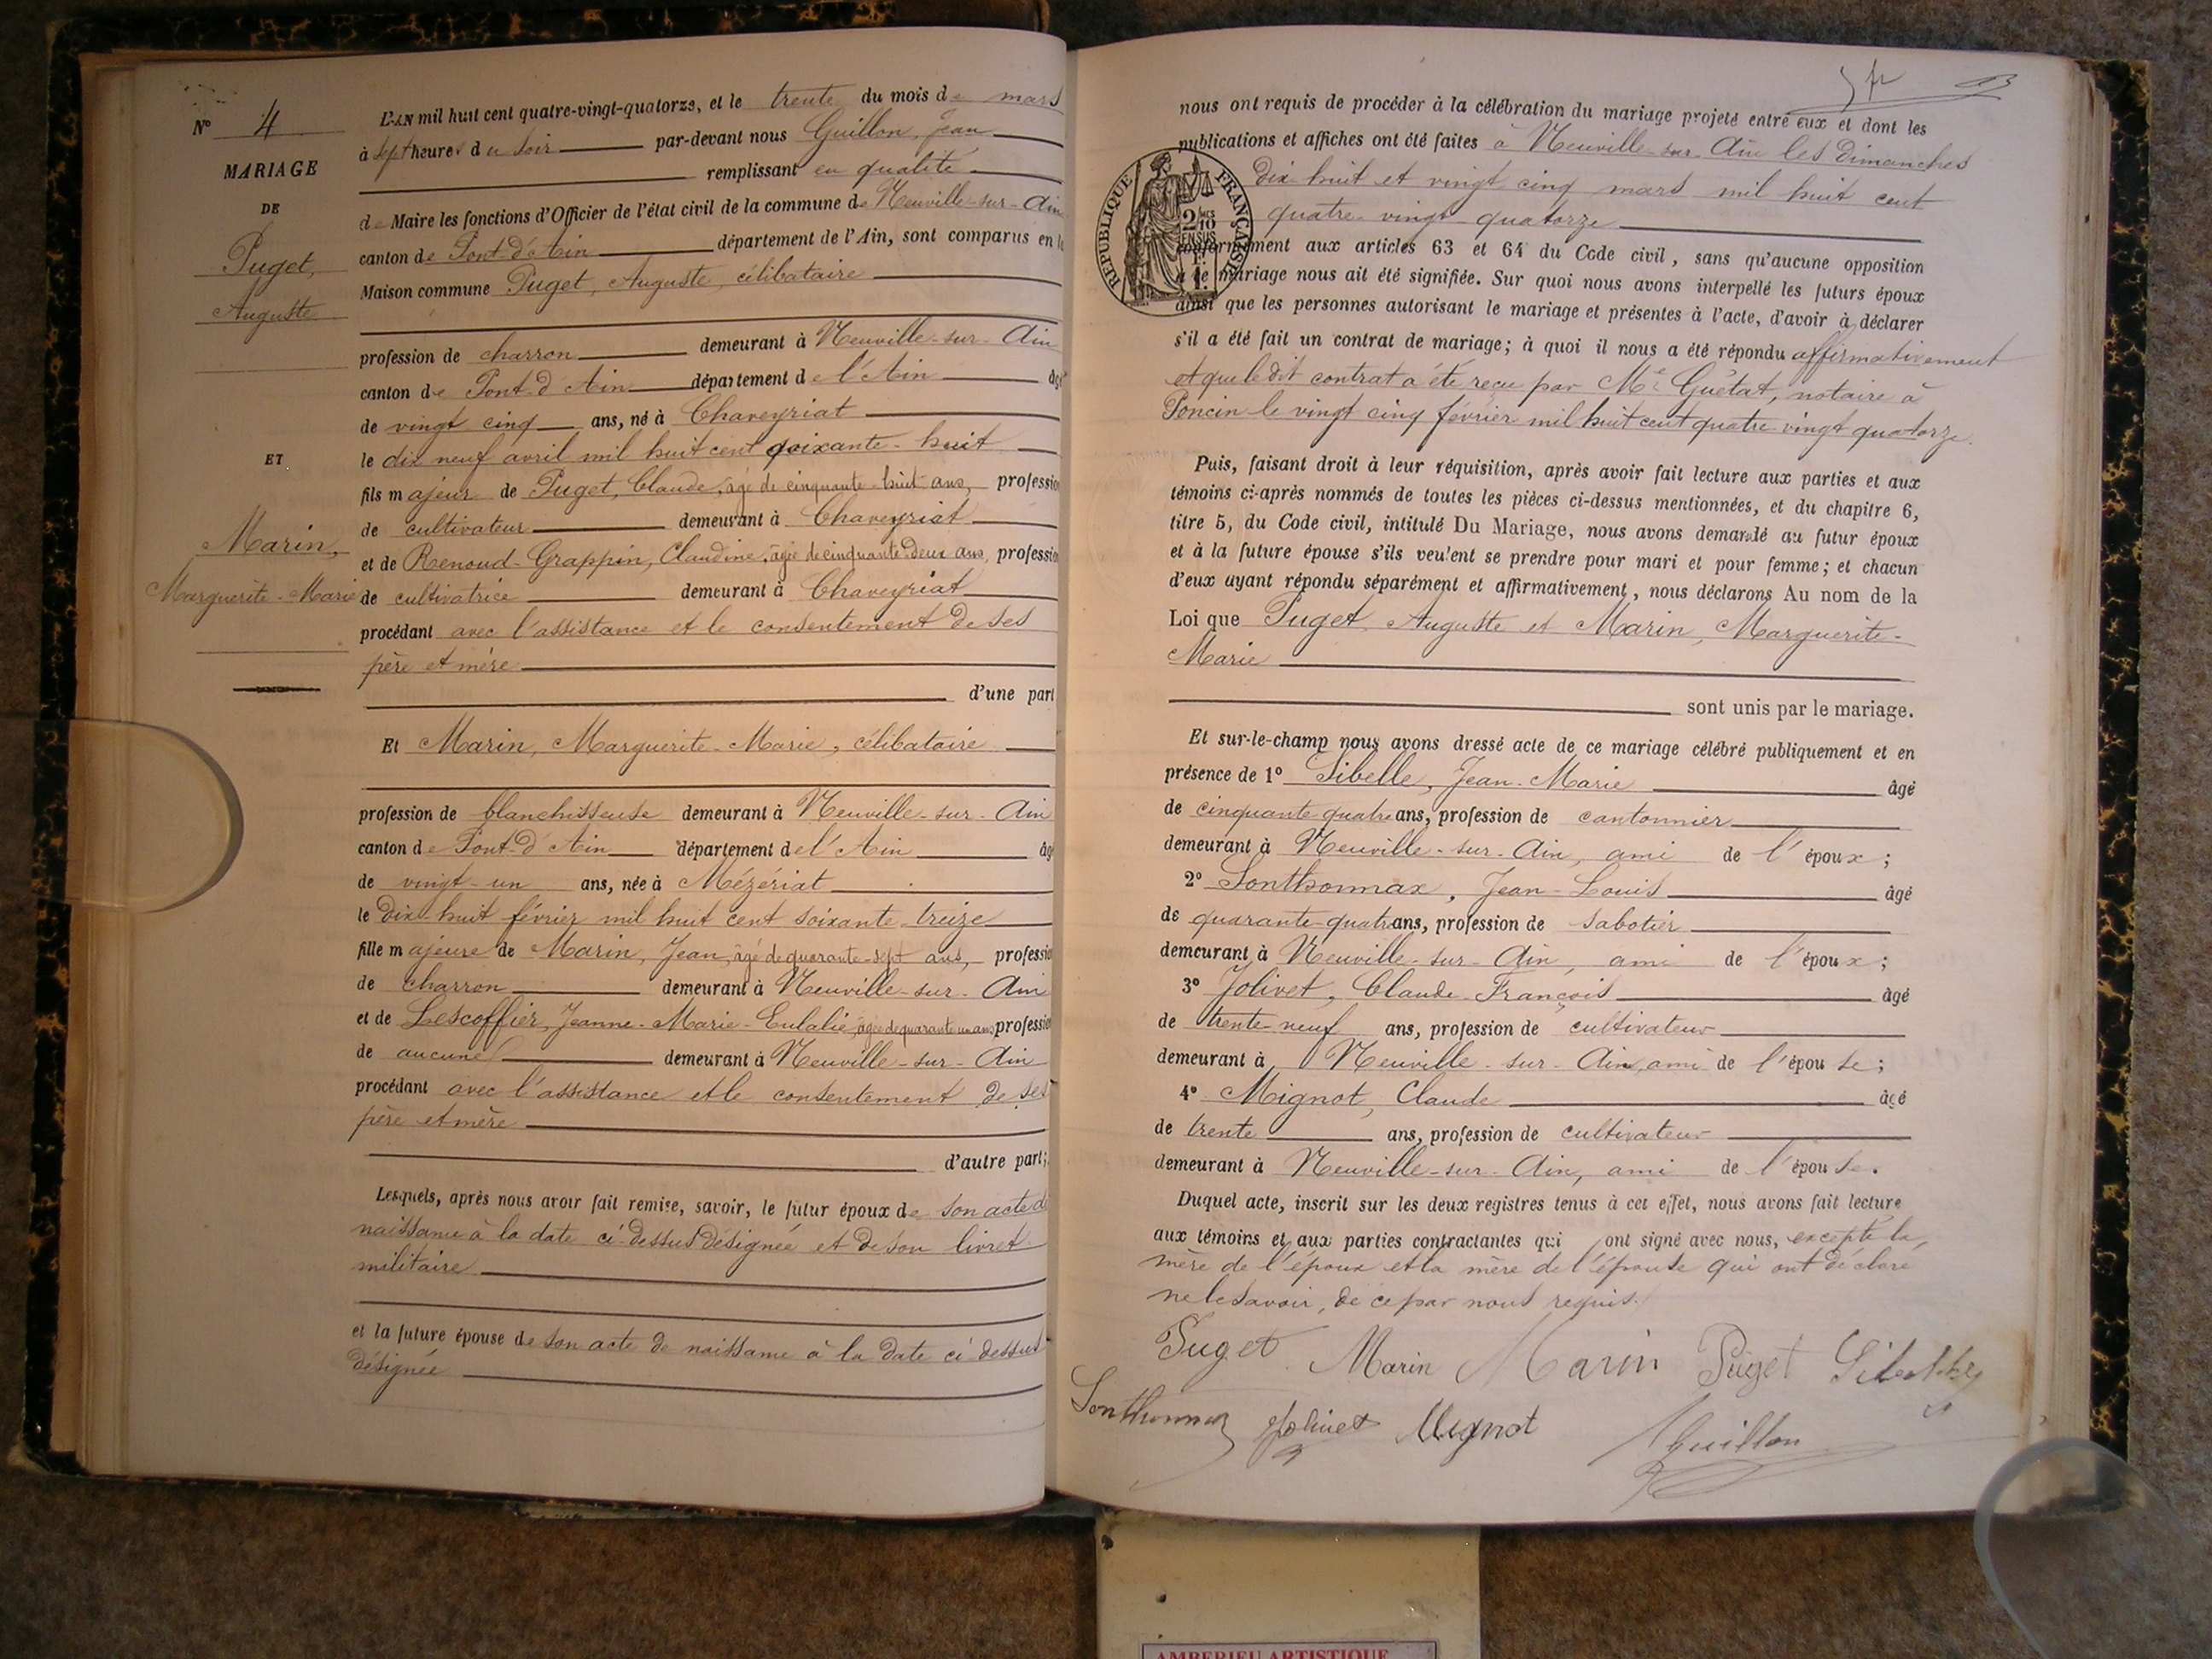 N° 4
MARIAGE
DE
Puget,
Auguste
ET
Marin,
Marguerite-Marie
L'AN mil huit cent quatre-vingt-quatorze, et le trente du mois de mars
à sept heures du soir par-devant nous Guillon, Jean
remplissant en qualité
de Maire les fonctions d'Officier de l'état civil de la commune de Neuville-sur-Ain
canton de Pont-d'Ain département de l'Ain, sont comparus en la
Maison commune Puget, Auguste, célibataire
profession de charron demeurant à Neuville-sur-Ain
canton de Pont-d'Ain département de l'Ain âgé
de vingt cinq ans, né à Chaveyriat
le dix neuf avril mil huit cent soixante-huit
fils majeur de Puget, Claude, âgé de cinquante-huit ans, profession
de cultivateur demeurant à Chaveyriat
et de Renoud-Grappin, Claudine, âgée de cinquante-deux ans, profession
de cultivatrice demeurant à Chaveyriat
procédant avec l'assistance et le consentement de ses
père et mère
d'une part
Et Marin, Marguerite-Marie, célibataire
profession de blanchisseuse demeurant à Neuville-sur-Ain
canton de Pont-d'Ain département de l'Ain âgé
de vingt-un ans, née à Mézériat
le dix-huit février mil huit cent soixante-treize
fille majeure de Marin, Jean, âgé de quarante-sept ans, profession
de charron demeurant à Neuville-sur-Ain
et de Lescoffier, Jeanne-Marie-Eulalie, âgée de quarante un ans, profession
de aucune demeurant à Neuville-sur-Ain
procédant avec l'assistance et le consentement de ses
père et mère
d'autre part;
Lesquels, après nous avoir fait remise, savoir, le futur époux de son acte de
naissance à la date ci-dessus désignée et de son livret
militaire
et la future épouse de son acte de naissance à la date ci-dessus
désignée
nous ont requis de procéder à la célébration du mariage projeté entre eux et dont les
publications et affiches ont été faites à Neuville-sur-Ain les dimanches
dix-huit et vingt cinq mars mil huit cent
quatre-vingt quatorze
RÉPUBLIQUE FRANÇAISE
2/10 EN SUS
conformément aux articles 63 et 64 du Code civil, sans qu'aucune opposition
à ce mariage nous ait été signifiée. Sur quoi nous avons interpellé les futurs époux
ainsi que les personnes autorisant le mariage et présentes à l'acte, d'avoir à déclarer
s'il a été fait un contrat de mariage; à quoi il nous a été répondu affirmativement
et que le dit contrat a été reçu par Me Guétat, notaire à
Poncin le vingt cinq février mil huit cent quatre vingt quatorze.
Puis, faisant droit à leur réquisition, après avoir fait lecture aux parties et aux
témoins ci-après nommés de toutes les pièces ci-dessus mentionnées, et du chapitre 6,
titre 5, du Code civil, intitulé Du Mariage, nous avons demandé au futur époux
et à la future épouse s'ils veulent se prendre pour mari et pour femme; et chacun
d'eux ayant répondu séparément et affirmativement, nous déclarons Au nom de la
Loi que Puget, Auguste et Marin, Marguerite-
Marie
sont unis par le mariage.
Et sur-le-champ nous avons dressé acte de ce mariage célébré publiquement et en
présence de 1° Sibelle, Jean-Marie âgé
de cinquante quatre ans, profession de cantonnier
demeurant à Neuville-sur-Ain, ami de l'époux;
2° Sonthonnax, Jean-Louis âgé
de quarante-quatre ans, profession de sabotier
demeurant à Neuville-sur-Ain, ami de l'époux;
3° Jolivet, Claude-François âgé
de trente-neuf ans, profession de cultivateur
demeurant à Neuville-sur-Ain, ami de l'épouse;
4° Mignot, Claude âgé
de trente ans, profession de cultivateur
demeurant à Neuville-sur-Ain, ami de l'épouse.
Duquel acte, inscrit sur les deux registres tenus à cet effet, nous avons fait lecture
aux témoins et aux parties contractantes qui ont signé avec nous, excepté la
mère de l'époux et la mère de l'épouse qui ont déclaré
ne le savoir, de ce par nous requis.
Puget Marin Marin Puget
Sonthonnax Jolivet Mignot Guillon
AMBERIEU ARTISTIQUE